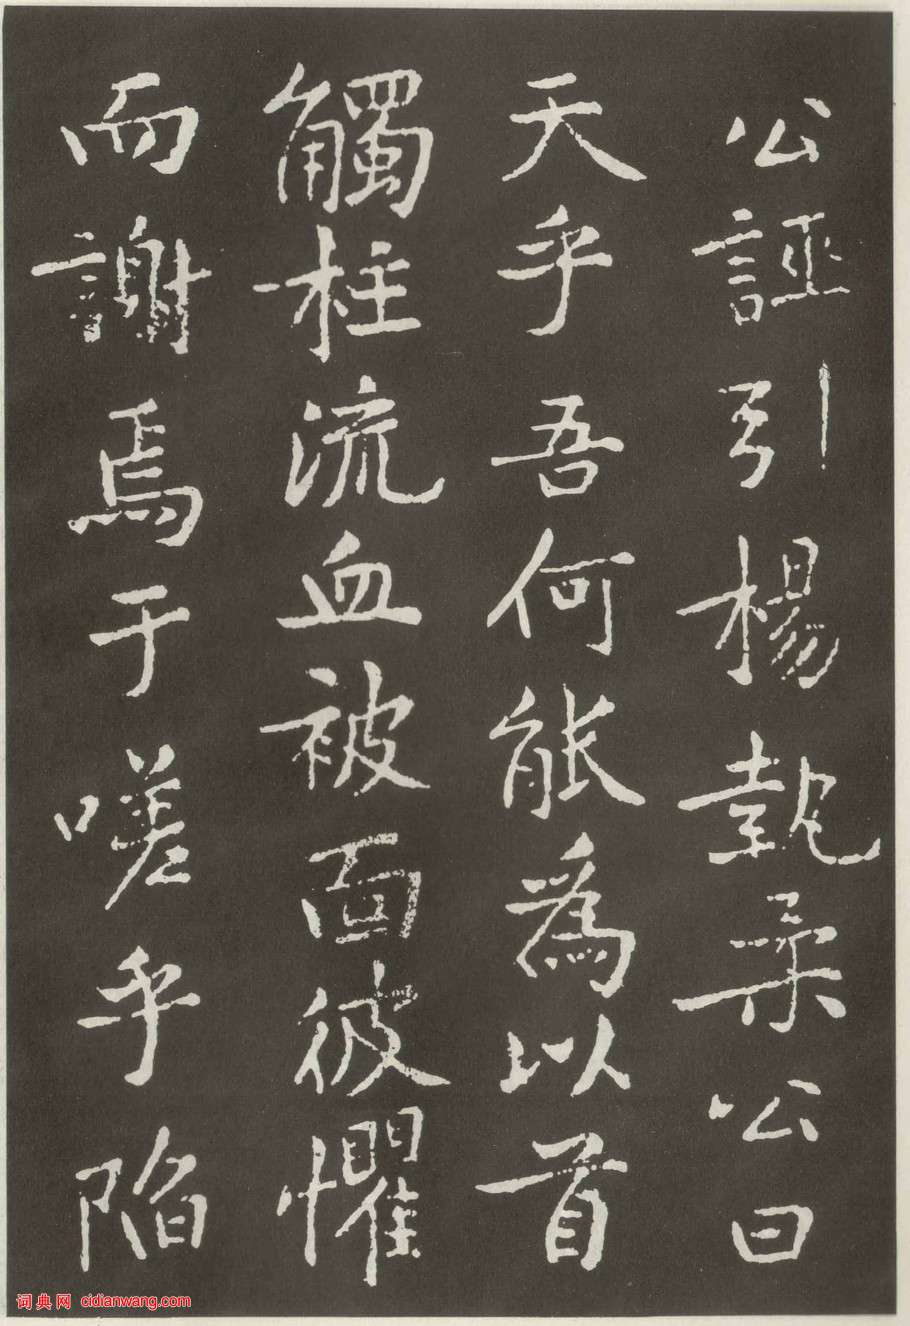 公誣引楊執柔公曰
天乎吾何能爲以首
觸柱流血被面彼懼
而謝焉于嗟乎陷
词典网 cidianwang.com